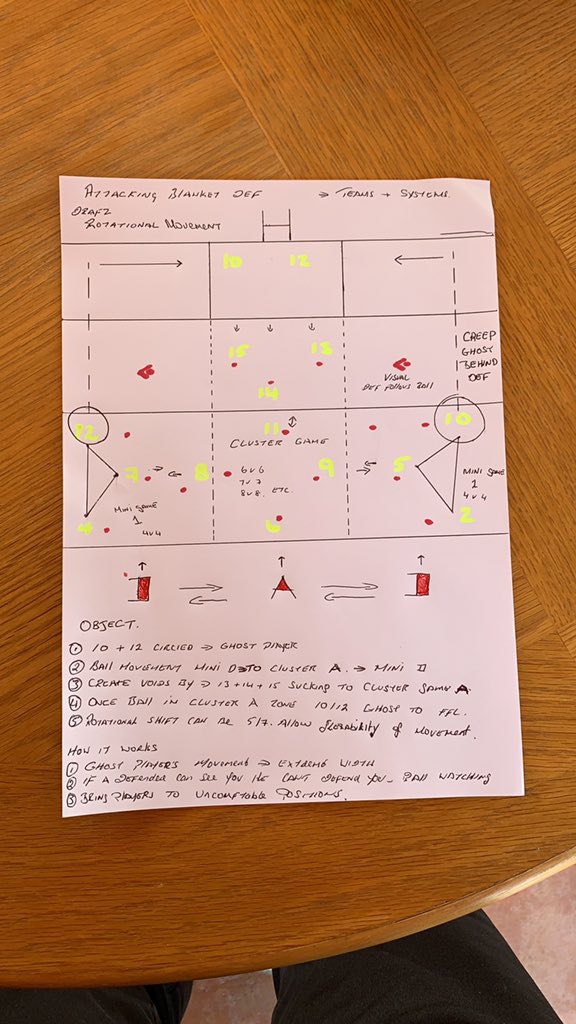 ATTACKING BLANKET DEF → TEAMS + SYSTEMS.
ROTATIONAL MOVEMENT
10 12
15 13
14
CREEP
GHOST
BEHIND
DEF
VISUAL
DEF FOLLOWS BALL
12 11 10
CLUSTER GAME
7 8 9 5
6 v 6
7 v 7
8 v 8. ETC.
MINI GAME
1
4 v 4
MINI GAME
1
4 v 4
4 6 2
A
OBJECT.
① 10 + 12 CIRCLED → GHOST PLAYER
② BALL MOVEMENT MINI TO CLUSTER A. → MINI
③ CREATE VOIDS BY → 13 + 14 + 15 SUCKING TO CLUSTER A.
④ ONCE BALL IN CLUSTER A ZONE 10/12 GHOST TO
⑤ ROTATIONAL SHIFT CAN BE 5/7. ALLOW OF MOVEMENT.
HOW IT WORKS
① GHOST PLAYERS MOVEMENT → EXTREME WIDTH
② IF A DEFENDER CAN SEE YOU HE CANT DEFEND YOU - BALL WATCHING
③ BRING PLAYERS TO UNCOMFTABLE POSITIONS.